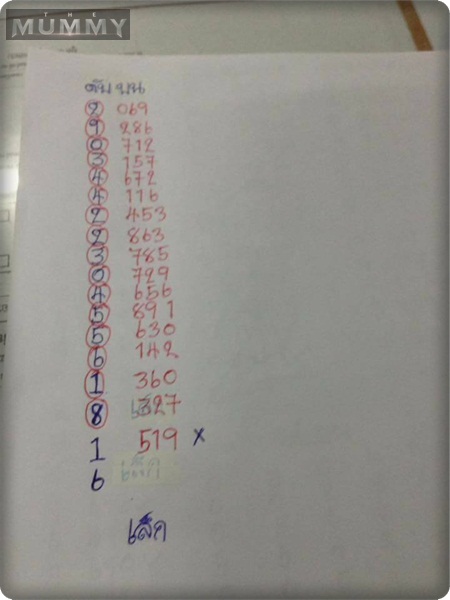 THE
MUMMY
ดับ บน
2 069
9 286
0 712
3 157
4 672
4 116
2 453
2 863
3 785
0 729
4 656
5 891
5 630
6 142
1 360
8 327
1 519 x
6
เล็ก